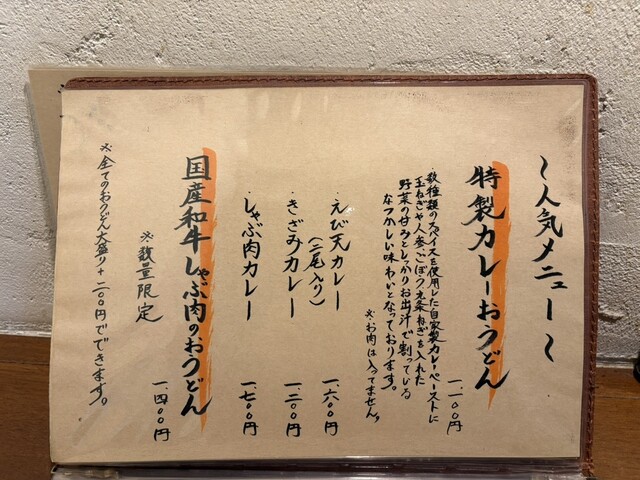 ～人気メニュー～
特製カレーおうどん
一、一〇〇円
・数種類のスパイスを使用した自家製カレーペーストに
玉ねぎや人参、ごぼう、九条ねぎを入れた
野菜の甘みとしっかりお出汁で割っている
なつかしい味わいとなっております。
※お肉は入ってません。
・えび天カレー
（二尾入り）
一、六〇〇円
・きざみカレー
一、三〇〇円
・しゃぶ肉カレー
一、七〇〇円
国産和牛しゃぶ肉のおうどん
一、四〇〇円
※数量限定
※全てのおうどん大盛り＋二〇〇円でできます。